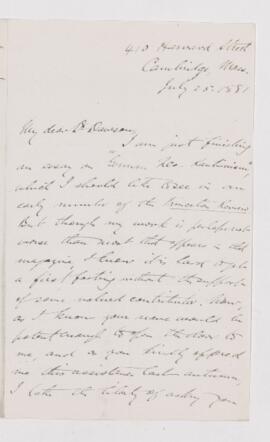 410 Harvard Street
Cambridge, Mass.
July 25. 1881
My dear Dr Dawson,
I am just finishing
an essay on "German Neo-Kantianism,"
which I should like to see in an
early number of the Princeton Review
But though my work is perhaps not
worse than most that appears in that
magazine, I know it is hard to get
a first footing without the support
of some valued contributor. Now,
as I know your name would be
potent enough to open the door to
me, and as you kindly offered
me this assistance last autumn,
I take the liberty of asking you